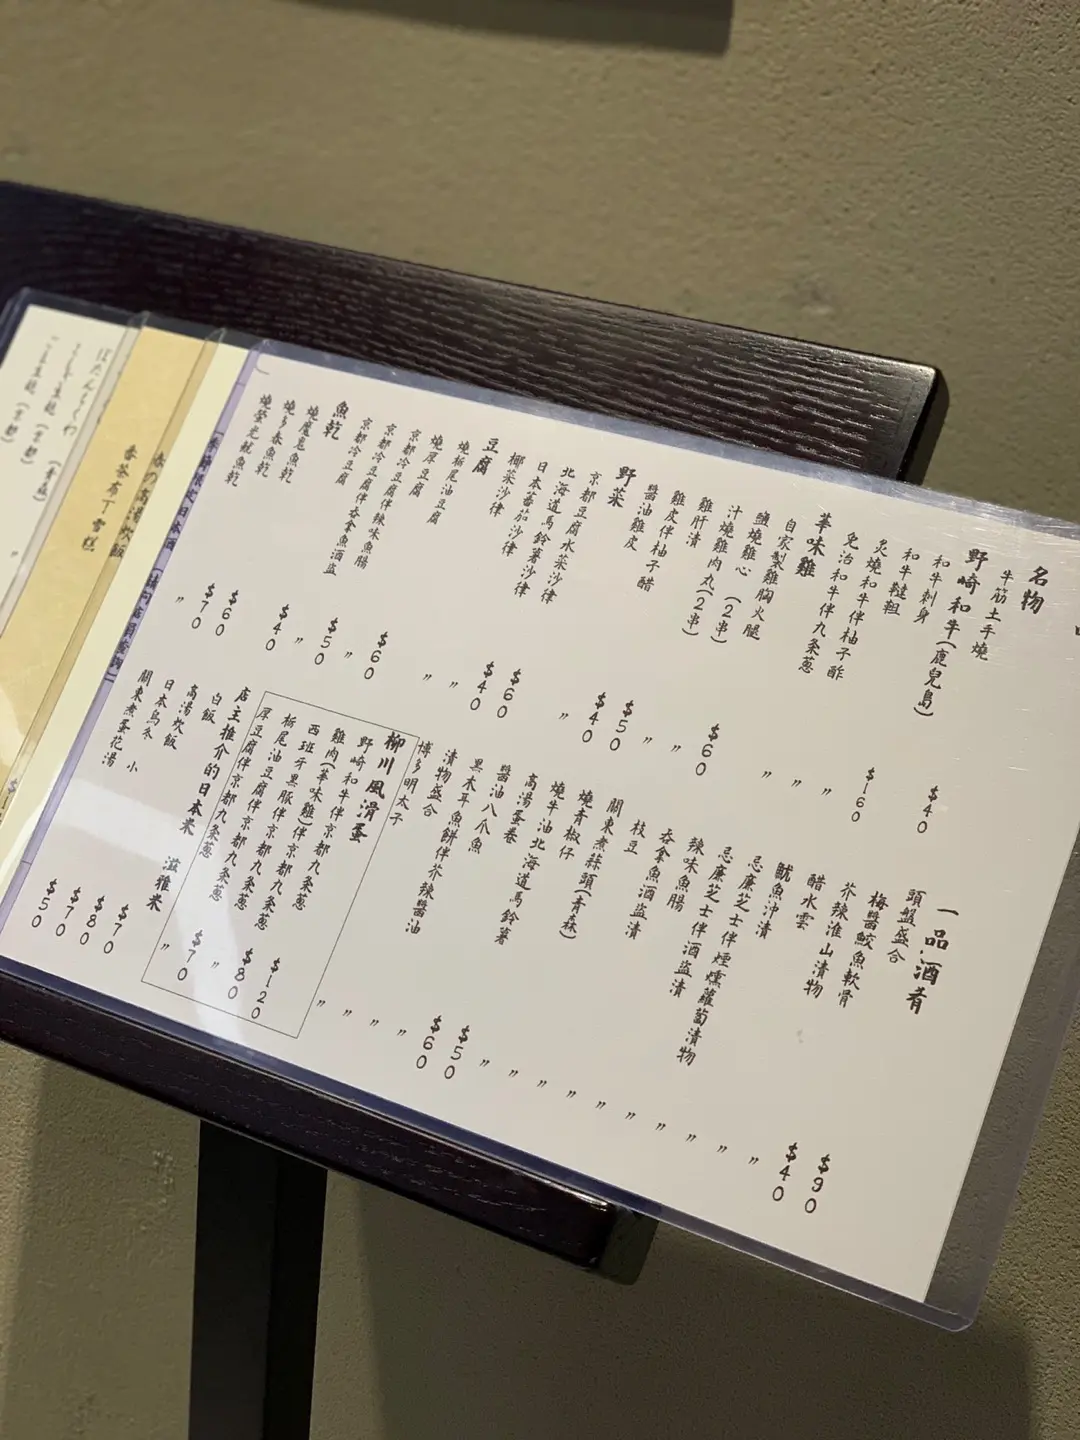 名物
牛筋土手燒 $40
野崎和牛(鹿兒島)
和牛刺身 $160
和牛韃靼 〃
炙燒和牛伴柚子醋
免治和牛伴九条葱 〃
華味雞
自家製雞胸火腿 $60
鹽燒雞心 (2串) 〃
汁燒雞肉丸(2串) 〃
雞肝漬 $50
雞皮伴柚子醋 $40
醬油雞皮 〃
野菜
京都豆腐水菜沙律 $60
北海道馬鈴薯沙律 $40
日本蕃茄沙律 〃
椰菜沙律 〃
豆腐
燒栃尾油豆腐 $60
燒厚豆腐 〃
京都冷豆腐伴辣味魚腸 $50
京都冷豆腐伴吞拿魚酒盜 〃
京都冷豆腐 $40
魚乾
燒魔鬼魚乾 $60
燒多春魚乾 $70
燒螢光魷魚乾 〃
一品.酒肴
頭盤盛合 $90
梅醬鮫魚軟骨 $40
芥辣淮山漬物 〃
醋水雲 〃
魷魚沖漬 〃
忌廉芝士伴煙燻蘿蔔漬物 〃
忌廉芝士伴酒盜漬 〃
辣味魚腸 〃
吞拿魚酒盜漬 〃
枝豆 〃
關東煮蒜頭(青森) 〃
燒青椒仔 〃
燒牛油北海道馬鈴薯 $50
高湯蛋卷 $60
醬油八爪魚 〃
黑木耳魚餅伴芥辣醬油 〃
漬物盛合 〃
博多明太子 〃
柳川風滑蛋
野崎和牛伴京都九条葱 $120
雞肉(華味雞)伴京都九条葱 $80
西班牙黑豚伴京都九条葱 〃
栃尾油豆腐伴京都九条葱 $70
厚豆腐伴京都九条葱 〃
店主推介的日本米 滋雅米
白飯 $70
高湯炊飯 $80
日本烏冬 小 $70
關東煮蛋花湯 $50
春の高湯炊飯
香茶布丁雪糕